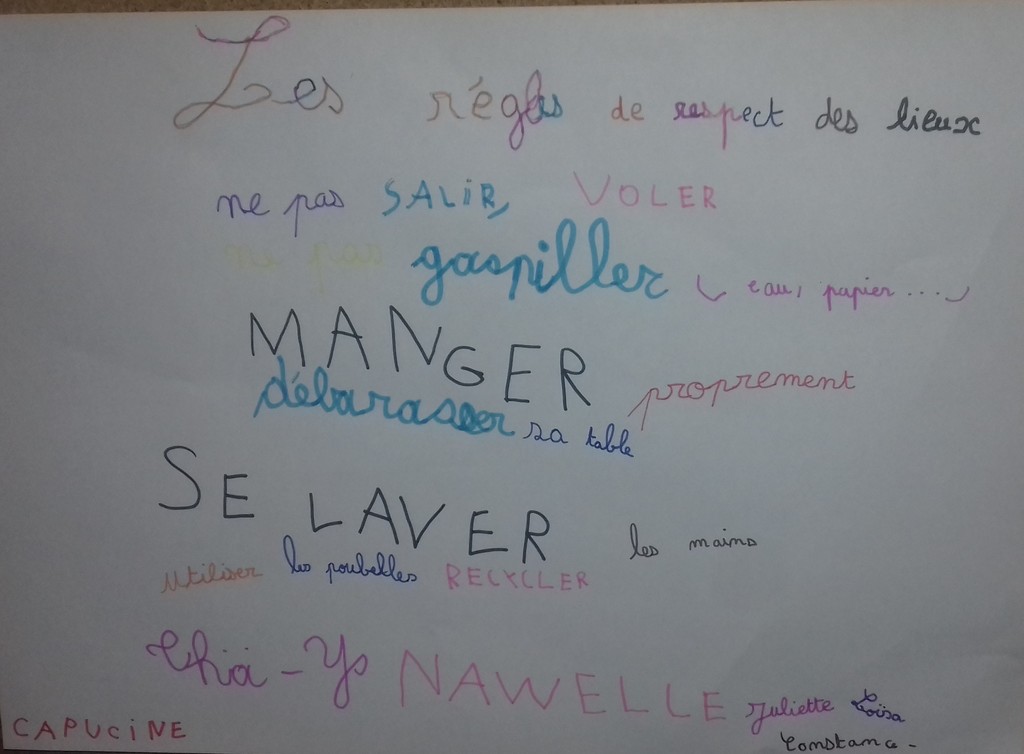 Les régles de respect des lieux
ne pas SALIR, VOLER
ne pas gaspiller ( eau, papier ... )
MANGER proprement
débarasser sa table
SE LAVER les mains
utiliser les poubelles RECYCLER
NAWELLE Juliette
CAPUCINE